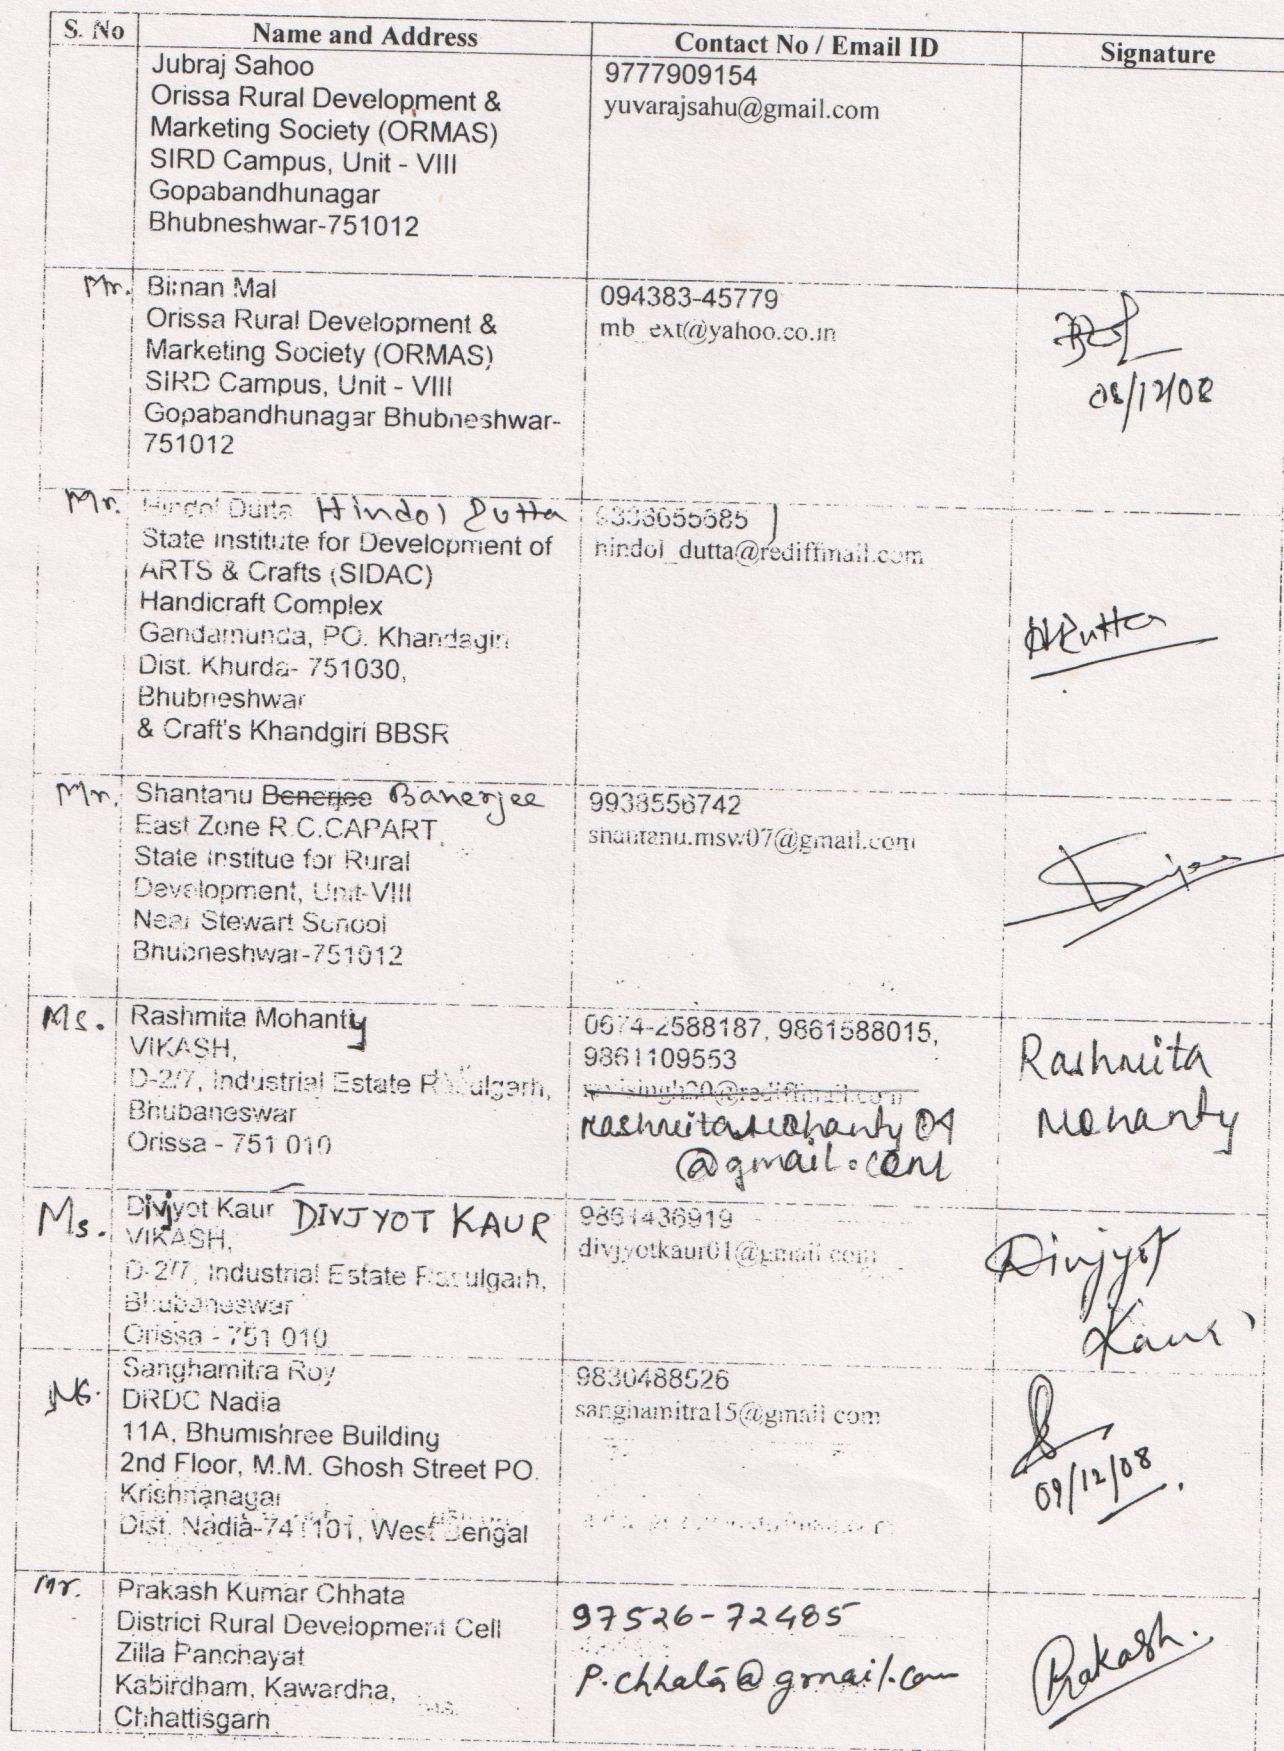 S. No Name and Address Contact No / Email ID Signature
Jubraj Sahoo
Orissa Rural Development &
Marketing Society (ORMAS)
SIRD Campus, Unit - VIII
Gopabandhunagar
Bhubneshwar-751012
9777909154
yuvarajsahu@gmail.com
Mr. Biman Mal
Orissa Rural Development &
Marketing Society (ORMAS)
SIRD Campus, Unit - VIII
Gopabandhunagar Bhubneshwar-
751012
094383-45779
mb_ext@yahoo.co.in
08/12/08
Mr. Hindol Dutta Hindol Dutta
State Institute for Development of
ARTS & Crafts (SIDAC)
Handicraft Complex
Gandamunda, PO. Khandagiri
Dist. Khurda- 751030,
Bhubneshwar
& Craft's Khandgiri BBSR
hindol_dutta@rediffmail.com
HDutta
Mr. Shantanu Benerjee Banerjee
East Zone R.C.CAPART,
State Institue for Rural
Development, Unit-VIII
Near Stewart School
Bhubneshwar-751012
9938556742
shantanu.msw07@gmail.com
Ms. Rashmita Mohanty
VIKASH,
D-2/7, Industrial Estate Rasulgarh,
Bhubaneswar
Orissa - 751 010
0674-2588187, 9861588015,
9861109553
rashmitamohanty04
@gmail.com
Rashmita
Mohanty
Ms. Divjyot Kaur DIVJYOT KAUR
VIKASH,
D-2/7, Industrial Estate Rasulgarh,
Bhubaneswar
Orissa - 751 010
9861436919
divjyotkaur01@gmail.com
Divjyot
Kaur
Ms. Sanghamitra Roy
DRDC Nadia
11A, Bhumishree Building
2nd Floor, M.M. Ghosh Street PO.
Krishnanagar
Dist. Nadia-741101, West Bengal
9830488526
sanghamitra15@gmail.com
09/12/08
Mr. Prakash Kumar Chhata
District Rural Development Cell
Zilla Panchayat
Kabirdham, Kawardha,
Chhattisgarh
97526-72485
P.chhata@gmail.com
Prakash.